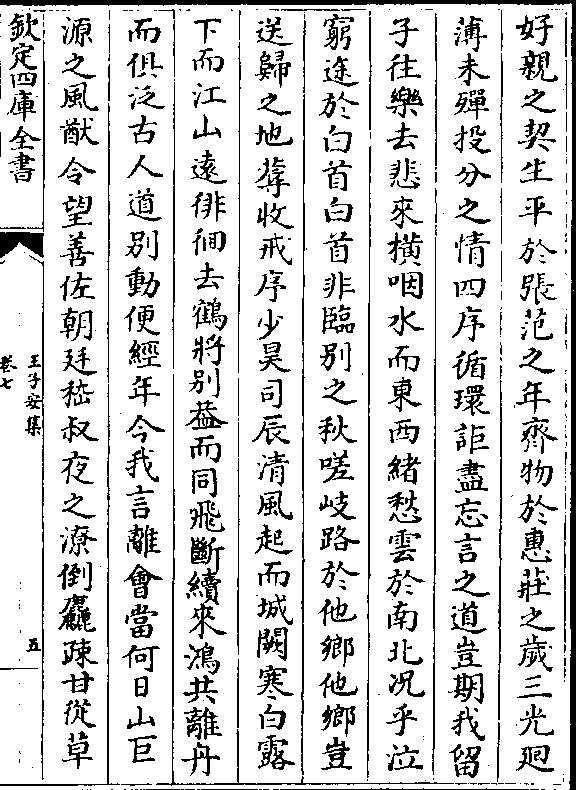 好親之契生平於張范之年齊物於惠莊之歲三光廻
薄未殫投分之情四序循環詎盡忘言之道豈期我留
子往樂去悲來橫咽水而東西緒愁雲於南北况乎泣
窮途於白首白首非臨別之秋嗟岐路於他鄉他鄉豈
送歸之地蓐收戒序少昊司辰清風起而城闕寒白露
下而江山遠徘徊去鶴將別葢而同飛斷續來鴻共離丹
而俱泛古人道別動便經年今我言離會當何日山巨
源之風猷令望善佐朝廷嵇叔夜之潦倒麤疎甘從草
欽定四庫全書
王子安集
卷七
五